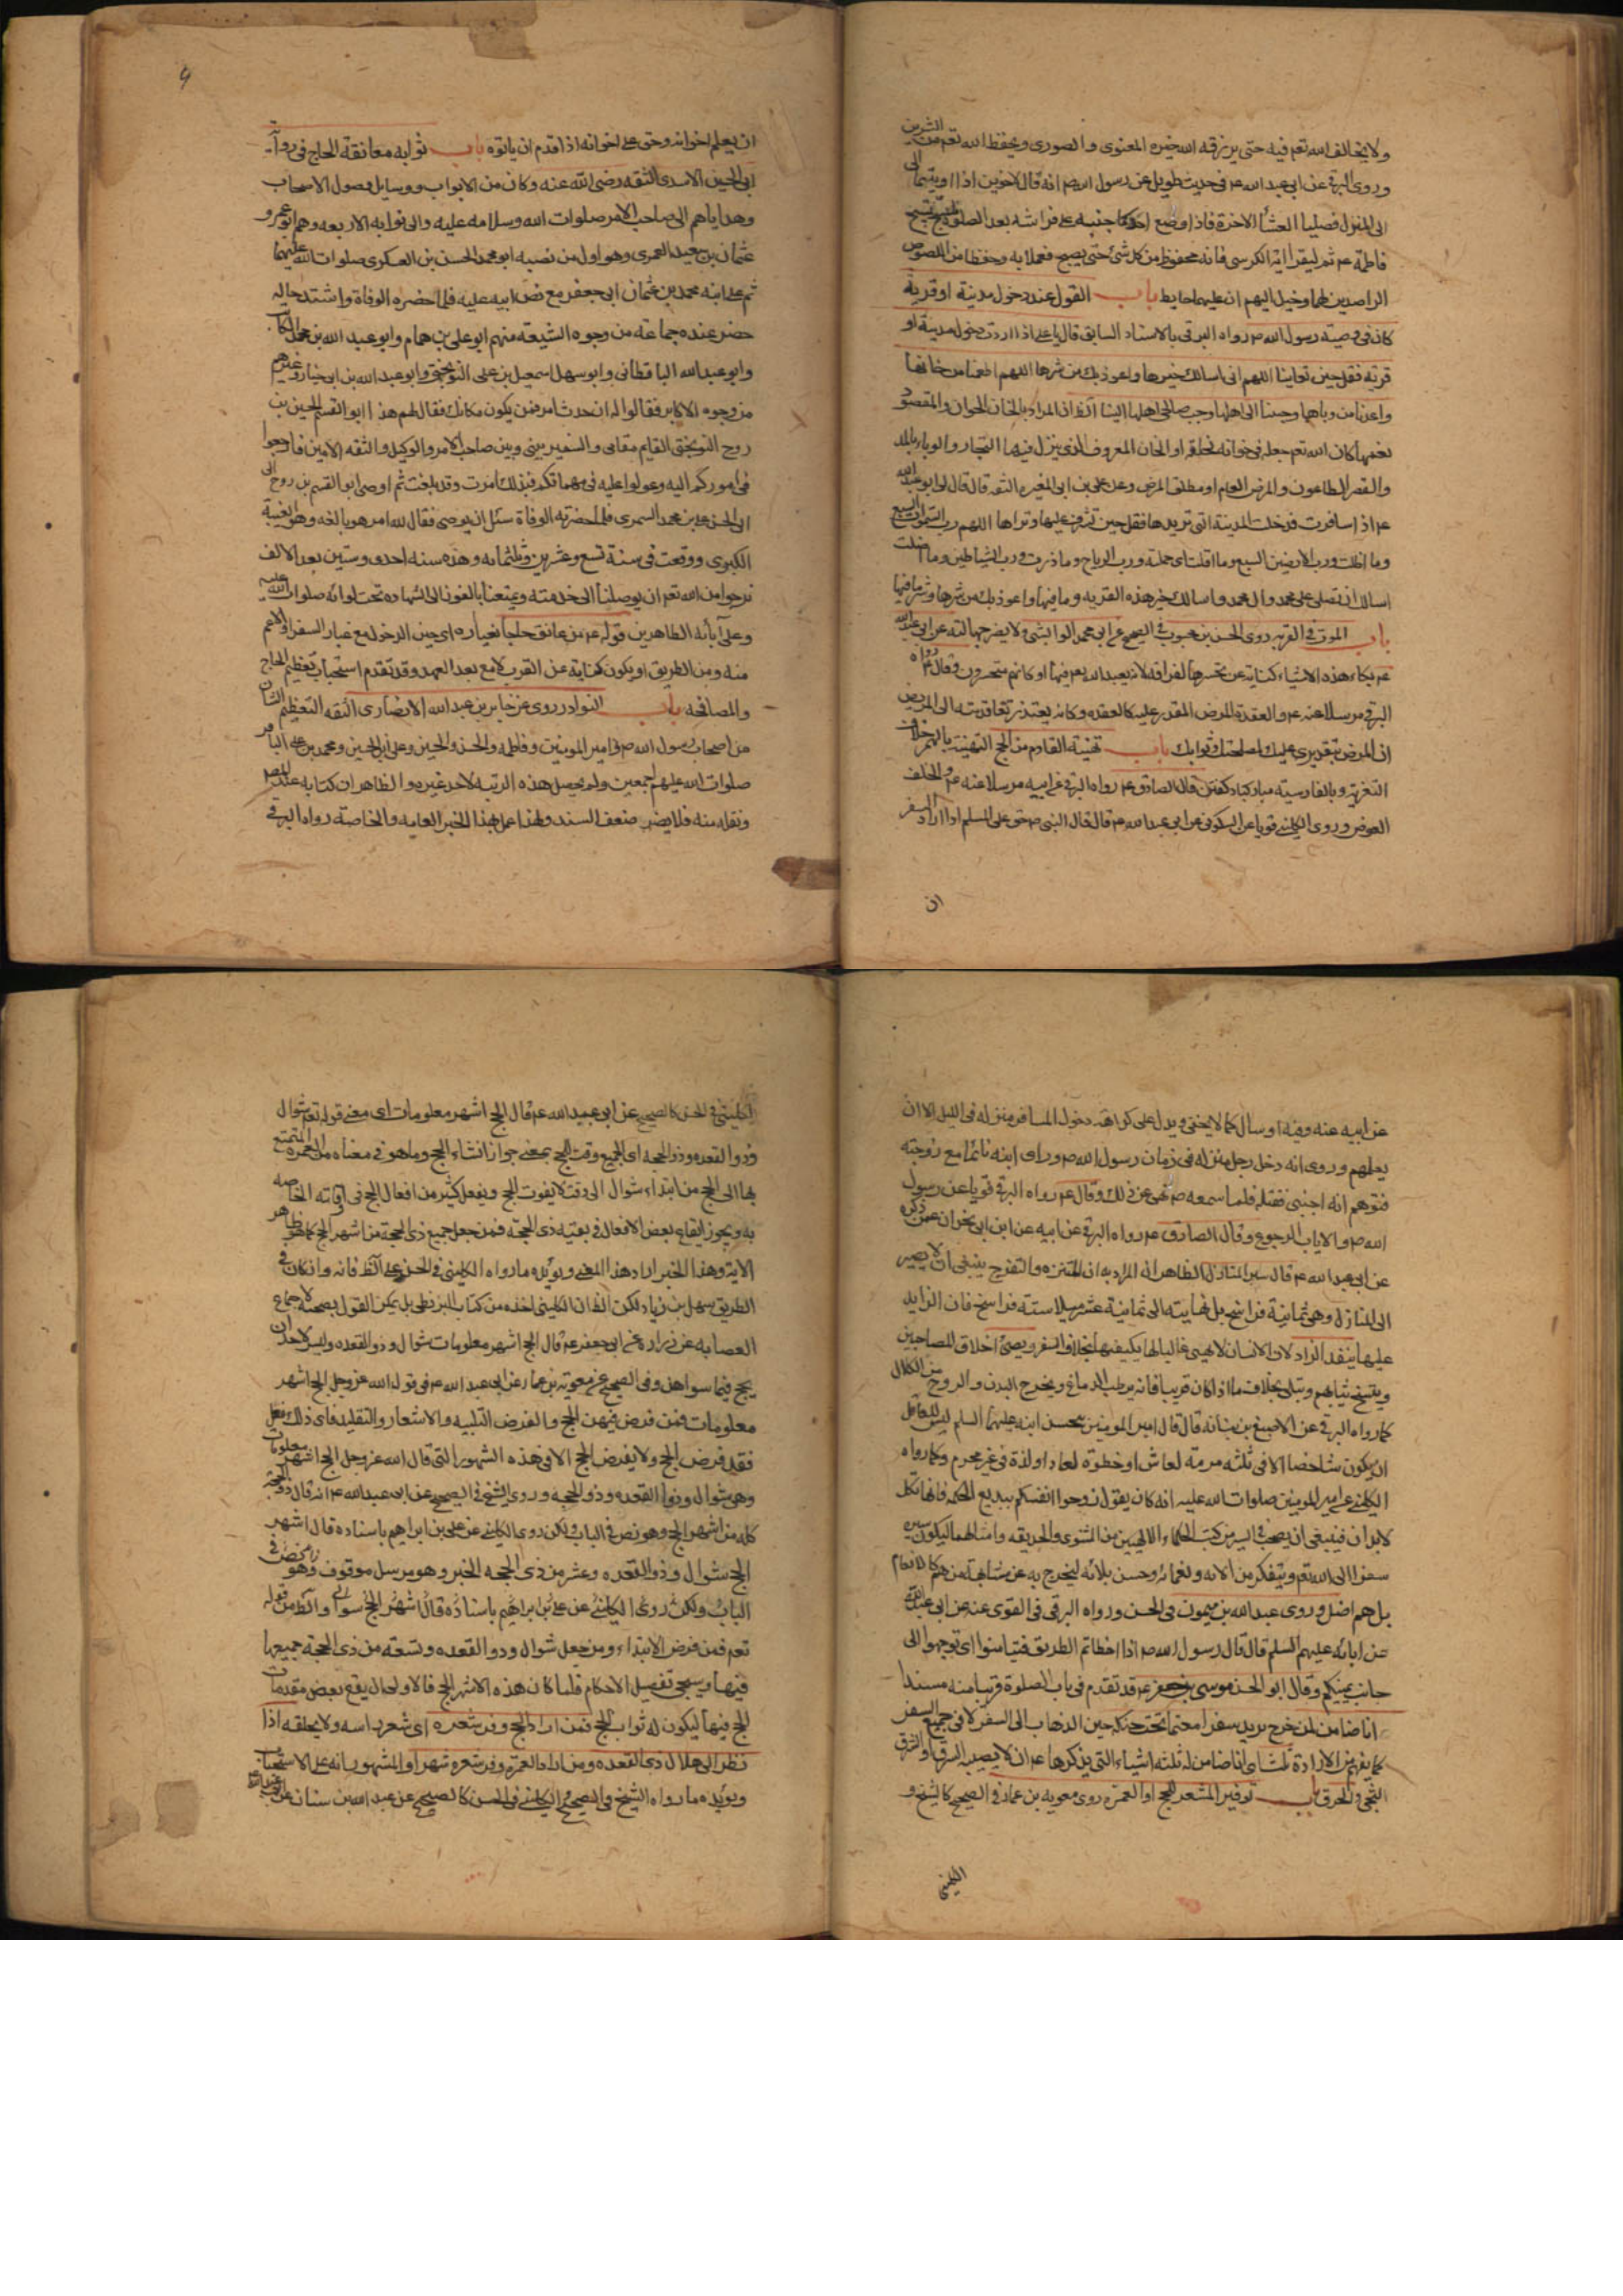 ولا يخالف الله تعم فيه حتى يرزقه الله خيره المعنوى والصورى ويحفظ الله تعم من الشرين
وروى البرقى عن ابى عبد الله عم فى حديث طويل عن رسول الله صم انه قال لاخوين اذا اويتما الى
الى المنزل فصليا العشآ الاخرة فاذا وضع احدكما جنبه على فراشه بعد الصلوة فليسبح تسبيح
فاطمة عم ثم ليقرأ اية الكرسى فانه محفوظ من كل شئ حتى يصبح ففعلا به وحفظا من اللصوص
الراصدين لهما وخيل اليهم ان عليهما حايط باب القول عند دخول مدينة او قرية
كان فى وصية رسول الله صم رواه البرقى بالاسناد السابق قال يا على اذا اردت دخول مدينة او
قرية فقل حين تعاينها اللهم انى اسالك خيرها واعوذ بك من شرها اللهم اطعمنا من خانها
واعذنا من وباها وحببنا الى اهلها وحبب صالحى اهلها الينا الظ ان المراد بالخان الخوان والمقصود
نعمها كان الله تعم جعله فى خوانه لخلقه او الخان المعروف الذى ينزل فيها التجار والوباء بالمد
والقصر الطاعون والمرض العام او مطلق المرض وعن على بن ابى المغيره الثقه قال قال لى ابو عبد الله
عم اذا سافرت فدخلت المدينة التى تريدها فقل حين تشرف عليها وتراها اللهم رب السموات السبع
وما اظلت ورب الارضين السبع وما اقلت اى حملت ورب الرياح وما ذرت ورب الشياطين وما اضلت
اسالك ان تصلى على محمد وال محمد واسالك خير هذه القريه وما فيها واعوذ بك من شرها وشر ما فيها
باب الموت فى الغربه روى الحسن بن محبوب فى الصحيح عن ابى محمد الوابشى ولا يضر جهالته عن ابى عبد الله
عم بكاء هذه الاشياء كناية عن تحسرها لفراقه لانه يعبد الله تعم فيها او كانهم متحسرون وقال عم رواه
البرقى مرسلا عنه عم والعقدة المرض المقدر عليه كالعقده وكانه يعتذر تعاقدته الى المريض
ان المرض بتقديرى عليك لمصلحتك وثوابك باب تهنية القادم من الحج التهنية بالهمز خلاف
التعزيه وبالفارسية مبارك باد كفتن قال الصادق عم رواه البرقى عن ابيه مرسلا عنه عم والخلف
العوض وروى الكلينى قويا عن السكونى عن ابى عبد الله عم قال قال النبى صم حق على المسلم اذا اراد السفر
ان
ان يعلم اخوانه وحق على اخوانه اذا قدم ان ياتوه باب ثوابه معانقة الحاج فى رواية
ابى الحسين الاسدى الثقه رضى الله عنه وكان من الابواب ووسايل وصول الاصحاب
وهداياهم الى صاحب الامر صلوات الله وسلامه عليه والى نوابه الاربعه وهم ابو عمرو
عثمان بن سعيد العمرى وهو اول من نصبه ابو محمد الحسن بن العسكرى صلوات الله عليهما
ثم على ابنه محمد بن عثمان ابى جعفر مع نص ابيه عليه فلما حضره الوفاة واشتد حاله
حضر عنده جماعة من وجوه الشيعه منهم ابو على بن همام وابو عبد الله بن محمد الكاتب
وابو عبد الله الباقطانى وابو سهل اسمعيل بن على النوبختى وابو عبد الله بن وغيرهم
من وجوه الاكابر فقالوا له ان حدث امر فمن يكون مكانك فقال لهم هذا ابو القسم الحسين بن
روح النوبختى القايم مقامى والسفير بينى وبين صاحب الامر والوكيل والثقه الامين فارجعوا
فى اموركم اليه وعولوا عليه فى مهماتكم فبذلك امرت وقد بلغت ثم اوصى ابو القسم بن روح الى
ابى الحسن على بن محمد السمرى فلما حضرته الوفاة سئل ان يوصى فقال لله امر هو بالغه وهو الغيبة
الكبرى ووقعت فى سنة تسع وعشرين وثلثمايه وهذه سنه احدى وستين بعد الالف
نرجوا من الله تعم ان يوصلنا الى خدمته ويمتعنا بالفوز الى الشهاده تحت لوائه صلوات الله عليه
وعلى آبائه الطاهرين قوله عم من عانق حاجا بغباره اى حين الدخول مع غبار السفر او الاعم
منه ومن الطريق او يكون كناية عن القرب لا مع بعد العهد وقد تقدم استحباب تعظيم الحاج
والمصافحه باب النوادر روى عن جابر بن عبد الله الانصارى الثقه العظيم الشان
من اصحاب رسول الله صم وامير المومنين وفاطمه والحسن والحسين وعلى بن الحسين ومحمد بن على الباقر
صلوات الله عليهم اجمعين ولم يحصل هذه الرتبه لاحد غيره والظاهر ان كتابه عند المصر
ونقله منه فلا يضر ضعف السند ولهذا عمل بهذا الخبر العامه والخاصة رواه البرقى
عن ابيه عنه وفيه ارسال كما لا يخفى ويدل على كراهة دخول المسافر منزله فى الليل الا ان
يعلمهم وروى انه دخل رجل منزله فى زمان رسول الله صم وراى ابنه نائما مع زوجته
فتوهم انه اجنبى فقتله فلما سمعه صم نهى عن ذلك وقال عم رواه البرقى قويا عن رسول
الله صم والاياب الرجوع وقال الصادق عم رواه البرقى عن ابيه عن ابن ابى نجران عمن ذكره
عن ابى عبد الله عم قال سير المنازل الظاهر ان المراد به ان المتنزه والتفرج ينبغى ان لا يصير
الى المنازل وهى ثمانية فراسخ بل نهايته الى ثمانية عشر ميلا ستة فراسخ فان الزايد
عليها ينفد الزاد لان الانسان لا يهيئ غالبا لها يكفيها بخلاف السفر ويسئ اخلاق المصاحبين
ويتسخ ثيابهم وتبلى بخلاف ما اذا كان قريبا فانه يرطب الدماغ ويخرج البدن والروح من الكلال
كما رواه البرقى عن الاصبغ بن نباته قال قال امير المومنين للحسن ابنه عليهما السلم ليس للعاقل
ان يكون شاخصا الا فى ثلثه مرمة لمعاش او خطوة لمعاد او لذة فى غير محرم وكما رواه
الكلينى عن امير المومنين صلوات الله عليه انه كان يقول روحوا انفسكم ببديع الحكمه فانها تكل
الابدان فينبغى ان يصحب فى السير من كتب الحكماء الالهيين من المثنوى والحديقه وامثالهما ليكون سيره
سفرا الى الله تعم ويتفكر من الائه ونعمائه وحسن بلائه ليخرج به عن مشابهة من هم كالانعام
بل هم اضل وروى عبد الله بن ميمون فى الحسن ورواه البرقى فى القوى عنه عن ابى عبد الله
عن ابائه عليهم السلم قال قال رسول الله صم اذا اخطاتم الطريق فتيامنوا اى توجهوا الى
جانب يمينكم وقال ابو الحسن موسى بن جعفر عم قد تقدم فى باب الصلوة قريبا منه مسندا
انا ضامن لمن خرج يريد سفرا معتما تحت حنكه حين الذهاب الى السفر لا فى جميع السفر
كما يفهم من الارادة ثلثا اى انا ضامن له ثلثه اشياء التى يذكرها عم ان لا يصيبه السرق والغرق
والحرق باب توفير الشعر للحج او العمره روى معويه بن عمار فى الصحيح كالشيخ و
الكلينى
الكلينى فى الحسن كالصحيح عن ابى عبد الله عم قال الحج اشهر معلومات اى معنى قوله تعم شوال
وذو القعده وذو الحجه اى الجميع وقت الحج بمعنى جواز انشاء الحج وما هو فى معناه من العمره المتمتع
بها الى الحج من ابتداء شوال الى وقت لا يفوت الحج ويفعل كثير من افعال الحج فى اوقاته الخاصه
به ويجوز ايقاع بعض الافعال فى بقيه ذى الحجة فمن جعل جميع ذى الحجة من اشهر الحج كما هو ظاهر
الاية وهذا الخبر اراد هذا المعنى ويؤيده ما رواه الكلينى فى الحسن على الظ فانه وان كان فى
الطريق سهل بن زياد لكن الظ ان الكلينى اخذه من كتاب البزنطى بل يمكن القول بصحته لاجماع
العصابه عن زراره عن ابى جعفر عم قال الحج اشهر معلومات شوال وذو القعده وليس لاحد ان
يحج فيما سواهن وفى الصحيح عن معويه بن عمار عن ابى عبد الله عم فى قول الله عز وجل الحج اشهر
معلومات فمن فرض فيهن الحج والفرض التلبيه والاشعار والتقليد فاى ذلك فعل
فقد فرض الحج ولا يفرض الحج الا فى هذه الشهور التى قال الله عز وجل الحج اشهر معلومات
وهو شوال وذو القعده وذو الحجه وروى الشيخ فى الصحيح عن ابى عبد الله عم انه قال ذو الحجة
كله من اشهر الحج وهو نص فى الباب ولكن روى الكلينى عن على بن ابراهيم باسناده قال اشهر
الحج شوال وذو القعده وعشر من ذى الحجه الخبر وهو مرسل موقوف وهو نص فى
الباب ولكن روى الكلينى عن على بن ابراهيم باسناده قال اشهر الحج شوال والظ من قوله
تعم فمن فرض الابتداء ومن جعل شوال وذو القعده وتسعه من ذى الحجة جميعها
فيها وسيجئ تفصيل الاحكام فلما كان هذه الاشهر الحج فالاولى ان يقع بعض مقدمات
الحج فيها ليكون له ثواب الحج فمن اراد الحج وفر شعره اى شعر راسه ولا يحلقه اذا
نظر الى هلال ذى القعده ومن اراد العمرة وفر شعره شهرا والمشهور انه على الاستحباب
ويؤيده ما رواه الشيخ فى الصحيح والكلينى فى الحسن كالصحيح عن عبد الله بن سنان عن ابى عبد الله